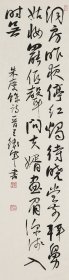 洞房昨夜停紅燭待曉堂前拜舅
姑妝罷低聲問夫婿畫眉深淺入
時無 朱慶餘詩 書